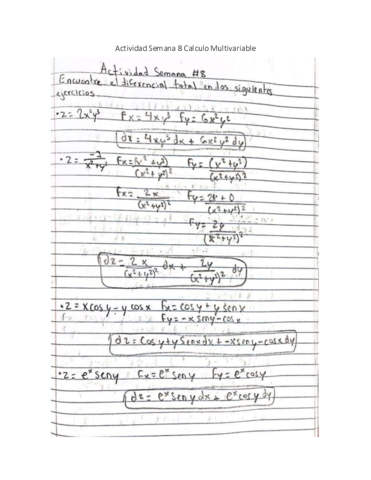 Actividad Semana 8 Calculo Multivariable
Actividad Semana #8
Encuentre el diferencial total en los siguientes
ejercicios.
• z = 2x²y³ Fx = 4xy³ Fy = 6x²y²
dz = 4xy³ dx + 6x²y² dy
• z = -1/(x²+y²) Fx = (x²+y²)/(x²+y²)² Fy = (x²+y²)/(x²+y²)²
Fx = 2x/(x²+y²)² Fy = 2y+0/(x²+y²)²
Fy = 2y/(x²+y²)²
dz = 2x/(x²+y²)² dx + 2y/(x²+y²)² dy
• z = x cos y - y cos x Fx = cos y + y sen x
Fy = -x sen y - cos x
dz = cos y + y sen x dx + -x sen y - cos x dy
• z = eˣ sen y Fx = eˣ sen y Fy = eˣ cos y
dz = eˣ sen y dx + eˣ cos y dy